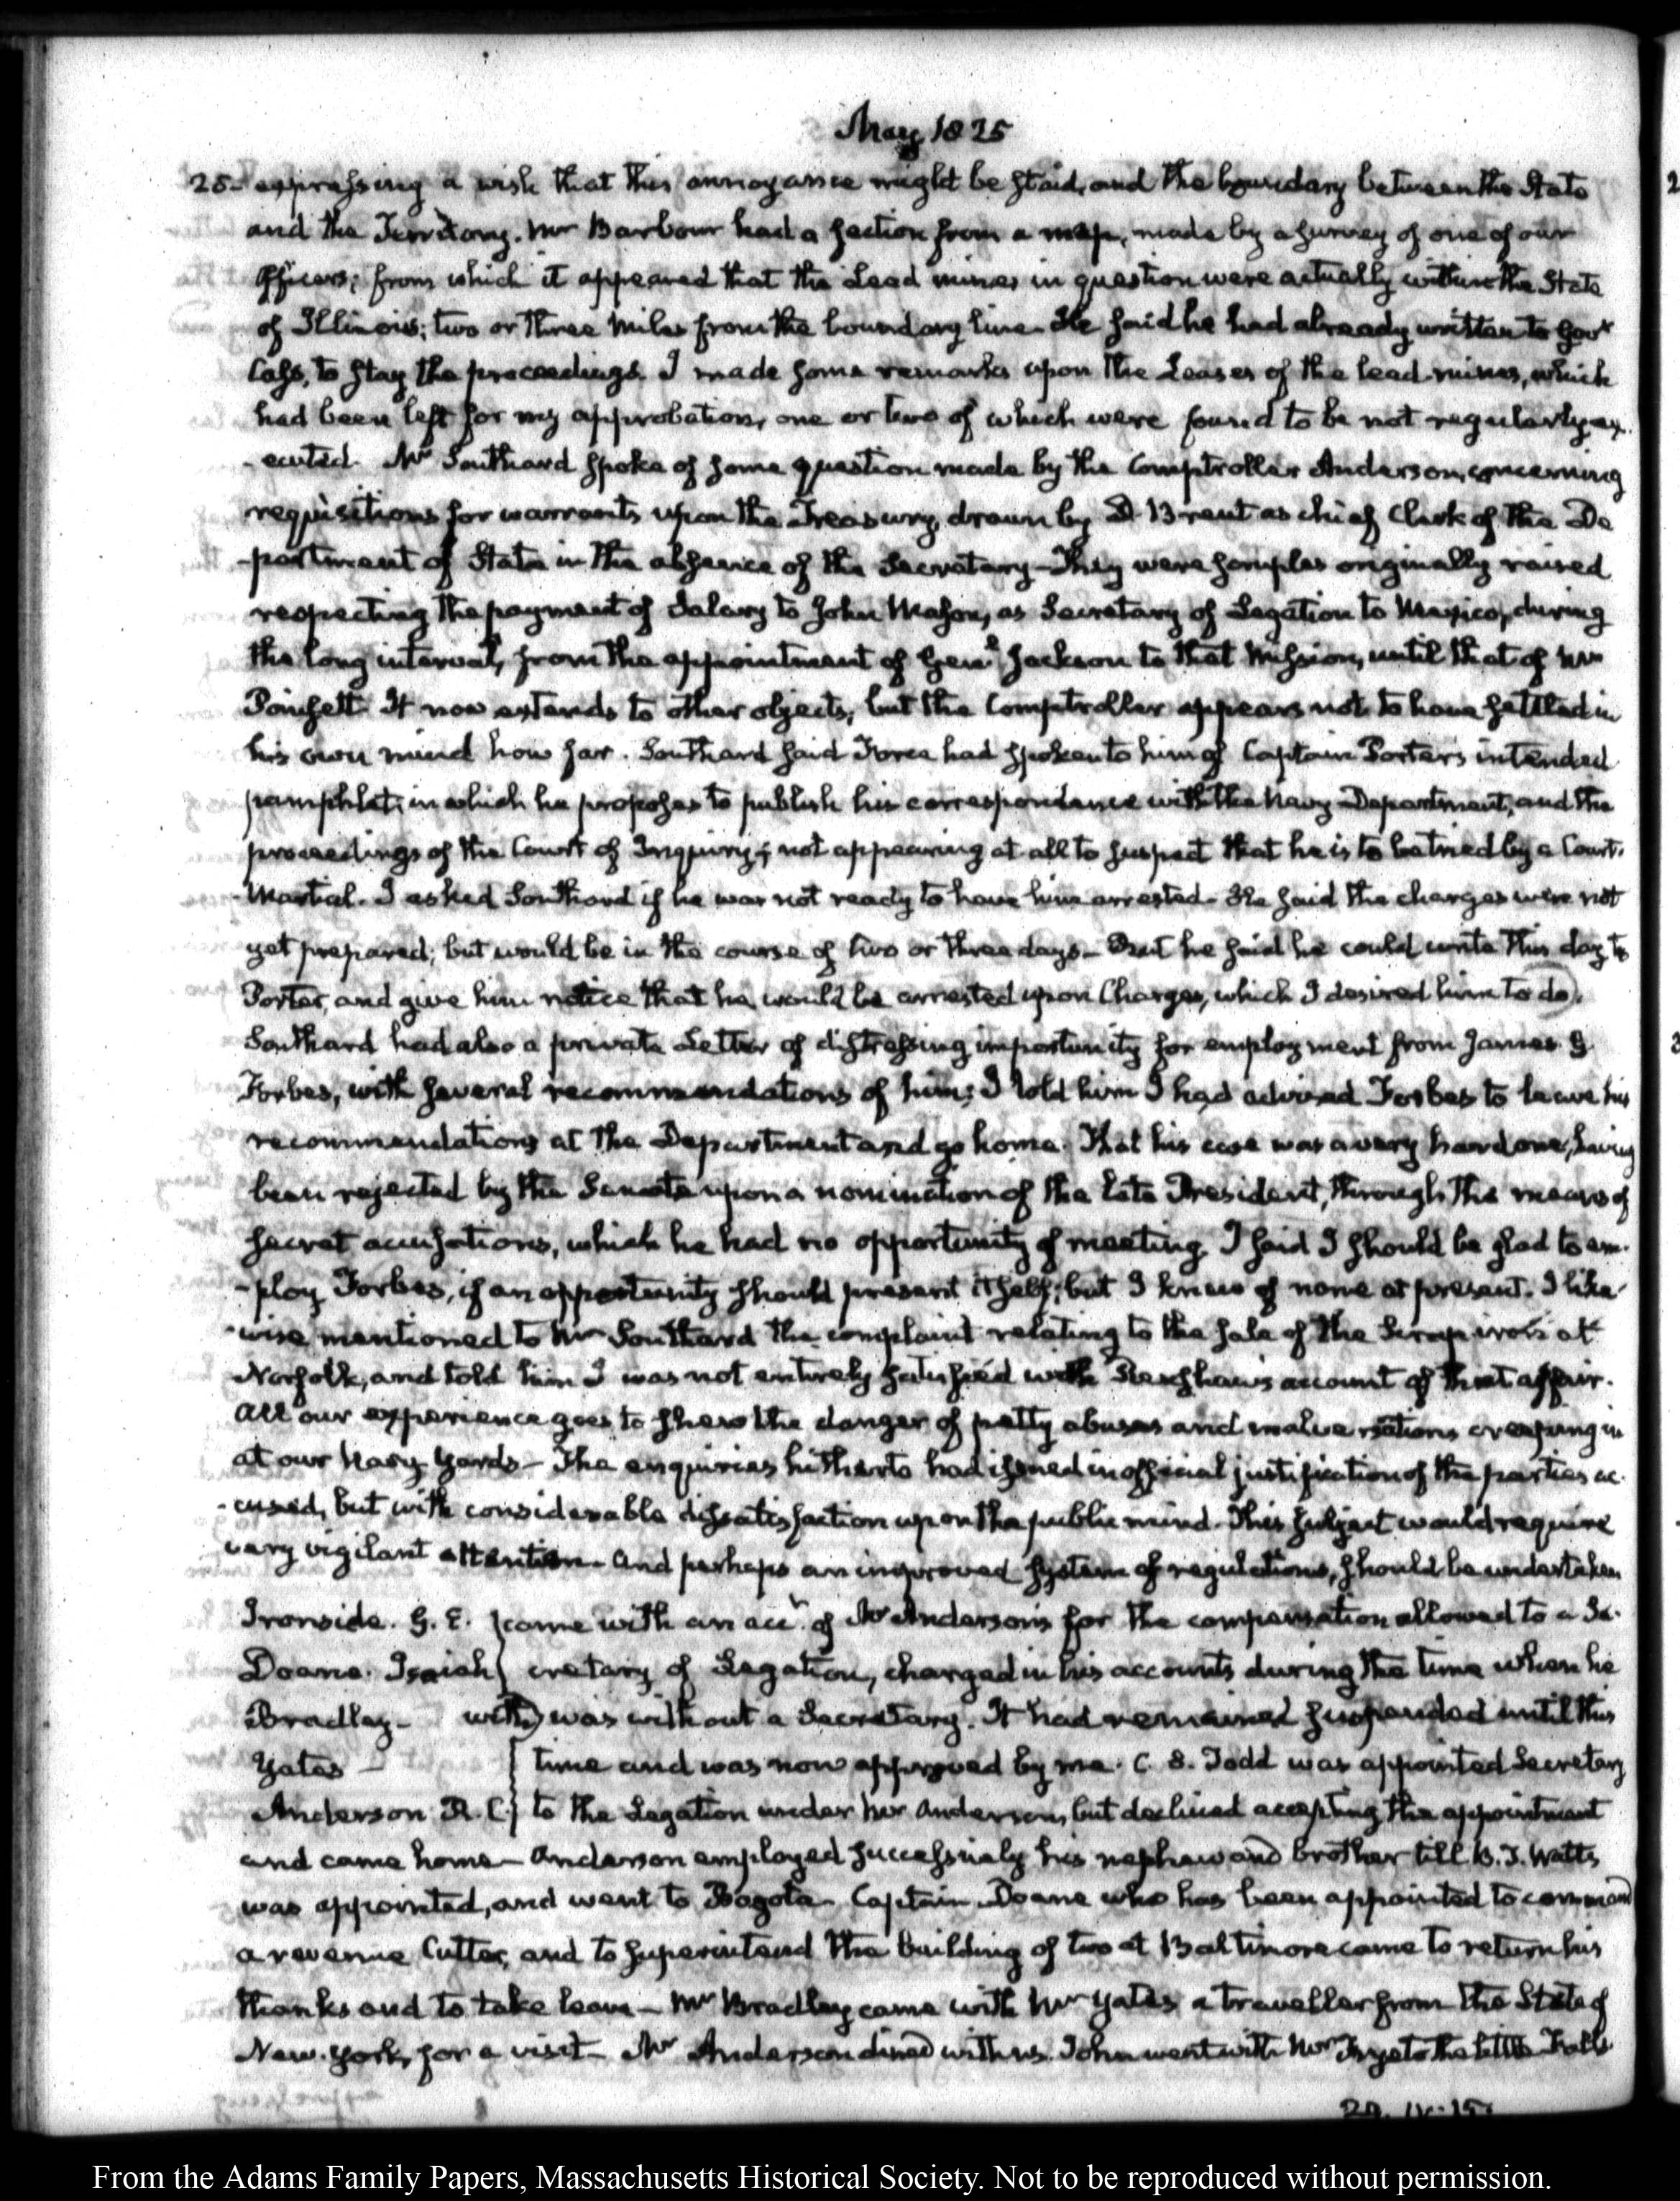 May 1825
28. expressing a wish that this annoyance might be staid, and the boundary between the State
and the Territory. Mr Barbour had a section from a map, made by a survey of one of our
Officers; from which it appeared that the Lead mines in question were actually within the State
of Illinois; two or three miles from the boundary line. He said he had already written to Govr
Cass, to stay the proceedings. I made some remarks upon the Leases of the lead-mines, which
had been left for my approbation, one or two of which were found to be not regularly ex-
-ecuted. Mr Southard spoke of some question made by the Comptroller Anderson, concerning
requisitions for warrants upon the Treasury, drawn by D. Brent as chief Clerk of the De
-partment of State in the absence of the Secretary—They were scruples originally raised
respecting the payment of Salary to John Mason, as Secretary of Legation to Mexico, during
the long interval, from the appointment of Genl Jackson to that Mission, until that of Mr
Poinsett. It now extends to other objects; but the Comptroller appears not to have settled in
his own mind how far. Southard said Force had spoken to him of Captain Porter's intended
pamphlet; in which he proposes to publish his correspondence with the Navy Department, and the
proceedings of the Court of Inquiry; not appearing at all to suspect that he is to be tried by a Court-
-Martial. I asked Southard if he was not ready to have him arrested. He said the charges were not
yet prepared; but would be in the course of two or three days—But he said he could write this day to
Porter, and give him notice that he would be arrested upon Charges, which I desired him to do.
Southard had also a private Letter of distressing importunity for employment from James G.
Forbes, with several recommendations of him; I told him I had advised Forbes to leave his
recommendations at the Department and go home. That his case was a very hard one, having
been rejected by the Senate upon a nomination of the late President, through the means of
secret accusations, which he had no opportunity of meeting. I said I should be glad to em-
-ploy Forbes, if an opportunity should present itself; but I knew of none at present. I like-
-wise mentioned to Mr Southard the complaint relating to the sale of the Scrap iron at
Norfolk, and told him I was not entirely satisfied with Renshaw's account of that affair.
All our experience goes to shew the danger of petty abuses and malversations creeping in
at our Navy Yards—The enquiries hitherto had issued in official justification of the parties ac-
-cused, but with considerable dissatisfaction upon the public mind. This subject would require
very vigilant attention. And perhaps an improved system of regulations, should be undertaken
Ironside. G. E. } came with an acct of Mr Anderson's for the compensation allowed to a Se-
Doane. Isaiah } cretary of Legation, charged in his accounts during the time when he
Bradley— with) was without a Secretary. It had remained suspended until this
Yates— { time and was now approved by me. C. S. Todd was appointed Secretary
Anderson R. C. } to the Legation under Mr Anderson, but declined accepting the appointment
and came home—Anderson employed successively his nephew and brother till B. T. Watts
was appointed, and went to Bogota. Captain Doane who has been appointed to command
a revenue Cutter, and to superintend the building of two at Baltimore came to return his
thanks and to take leave—Mr Bradley came with Mr Yates a traveller from the State of
New-York, for a visit—Mr Anderson dined with us. John went with Mr Frye to the little Falls
From the Adams Family Papers, Massachusetts Historical Society. Not to be reproduced without permission.